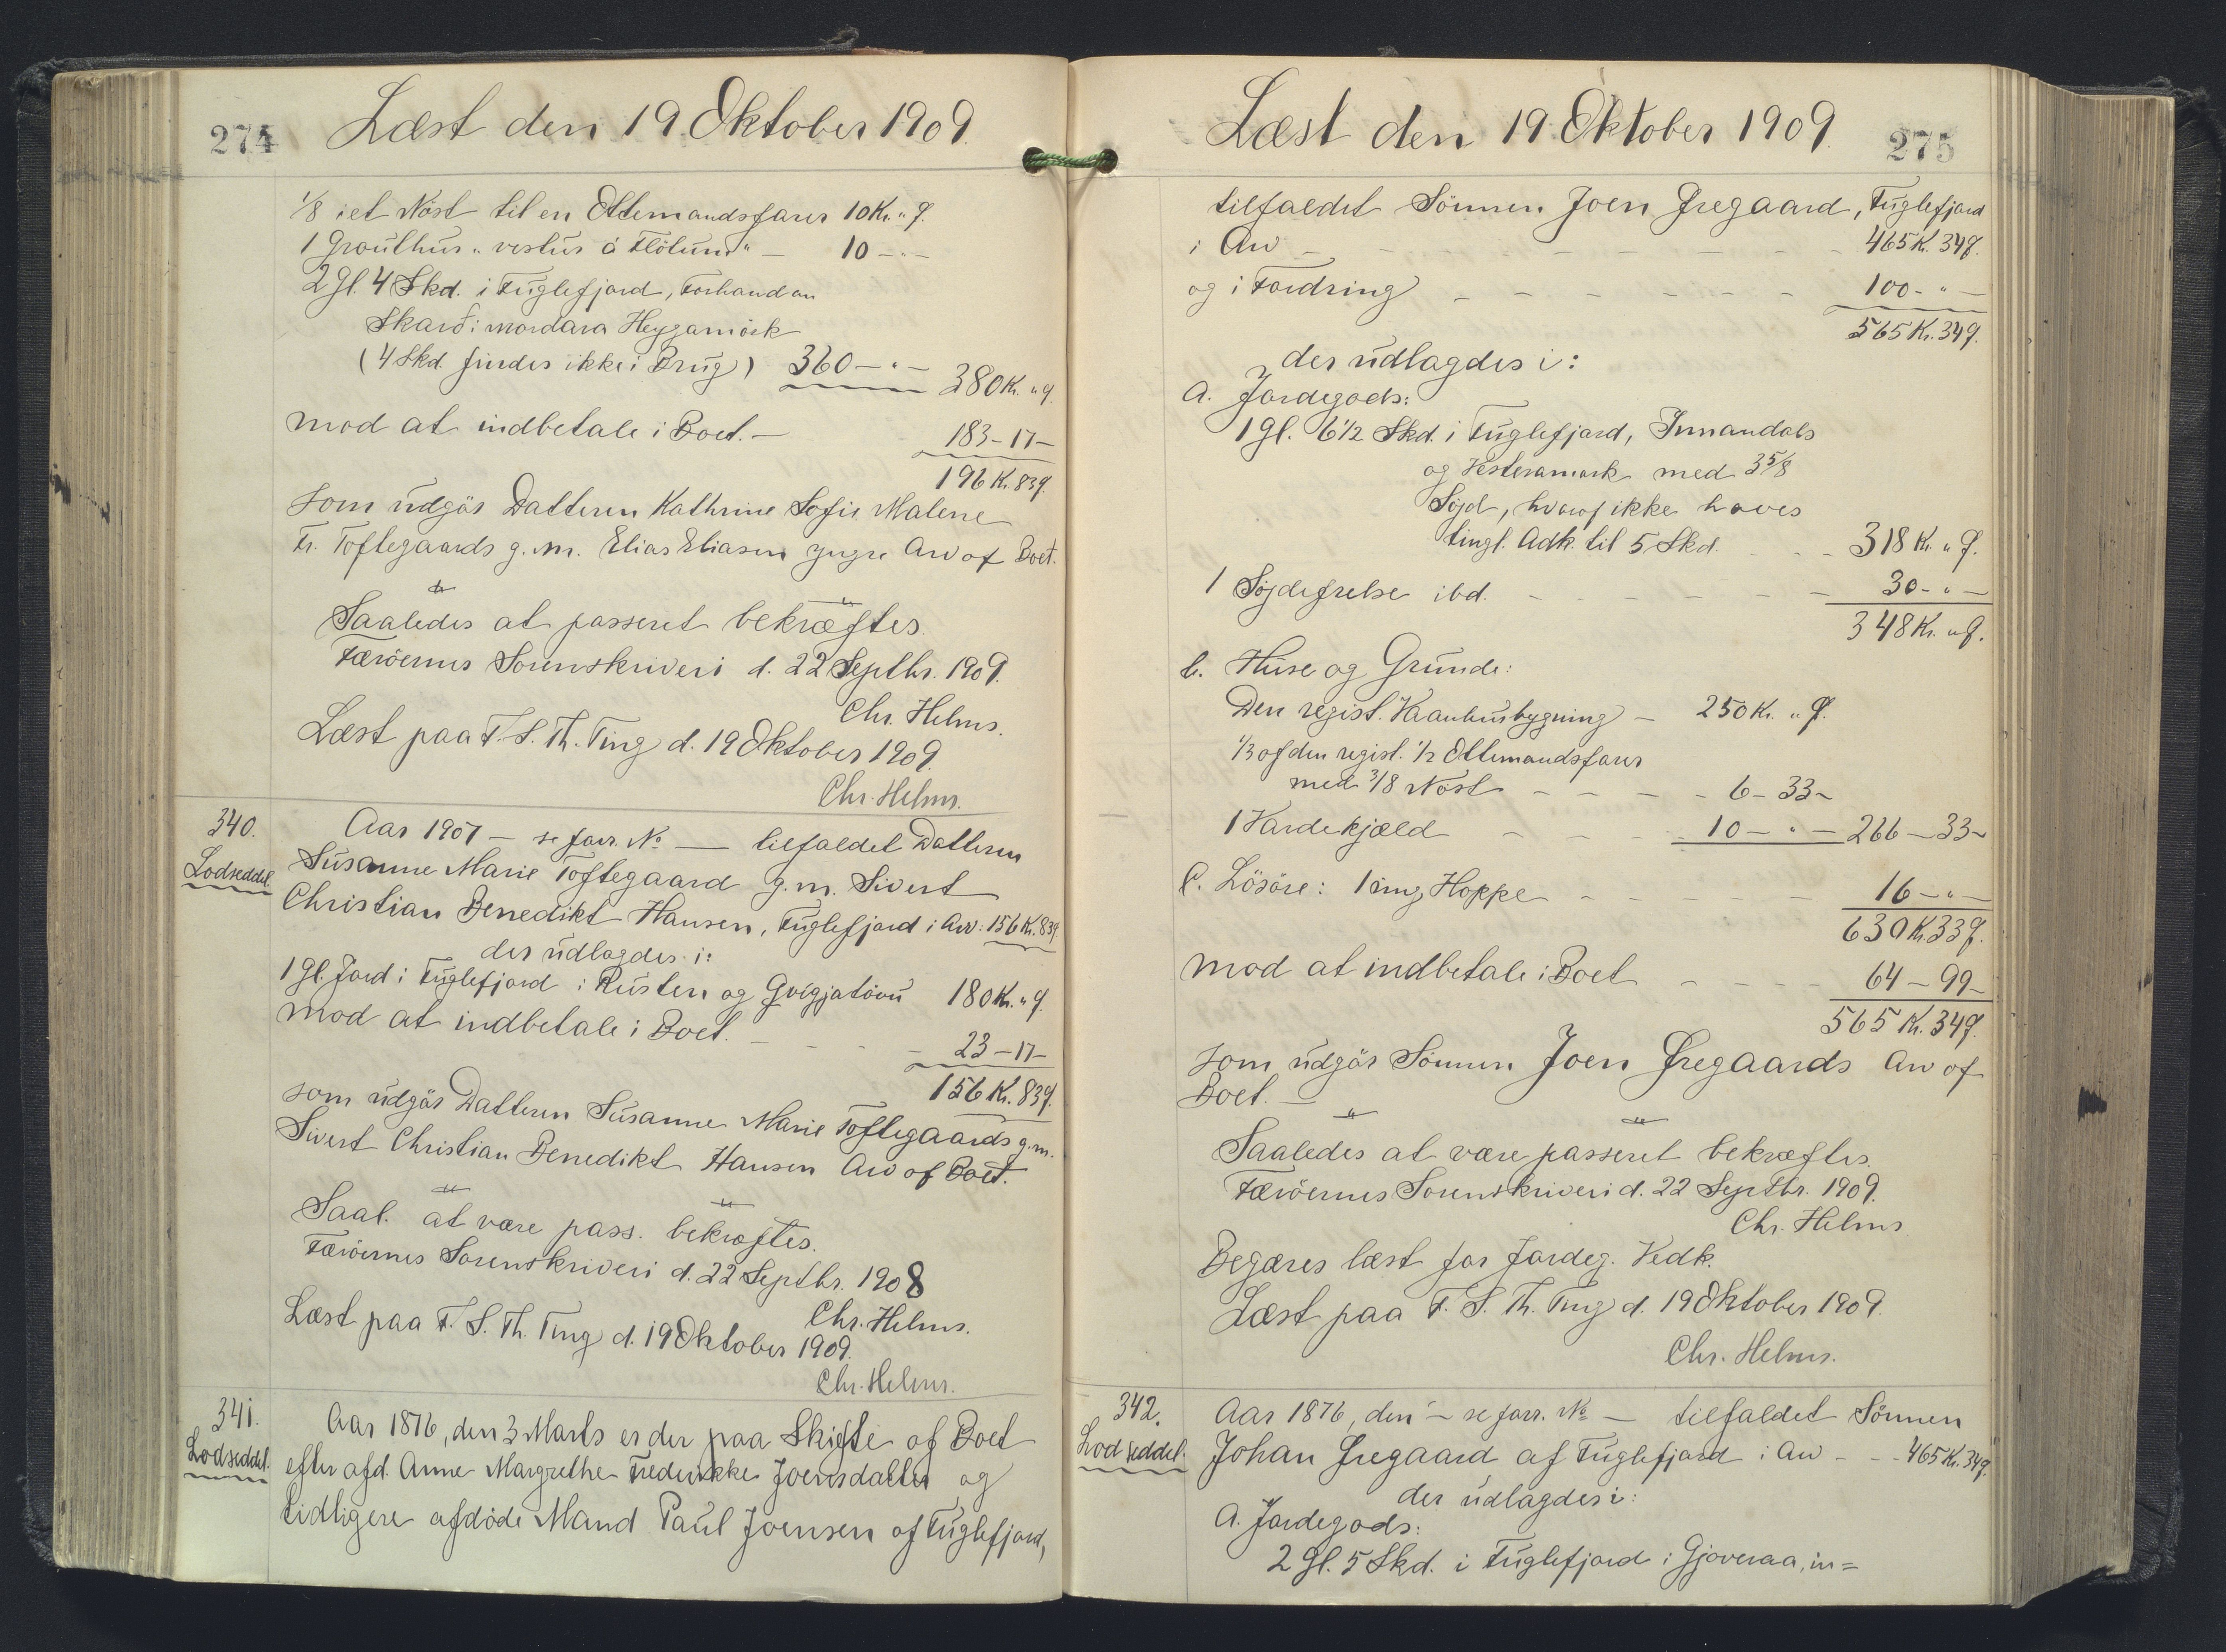 274
Læst den 19. Oktober 1909.
1/8 i et Nöst til en Ottemandsfarer 10 Kr. " Ø.
1 Grouthus " vestur á Flötum " — 10 — " —
2 Gl. 4 Skd. i Fuglefjord, Forhandan
Skard i nordara Heygamörk
(4 Skd. findes ikke i Brug) 360 — " — 380 Kr. " Ø.
mod at indbetale i Boet. — 183 - 17 -
196 Kr. 83 Ø.
som udgör Datteren Kathrine Sofie Malene
Fr. Toftegaards g. m. Elias Eliasen yngre Arv af Boet.
Saaledes at passeret bekræftes.
Færöernes Sorenskriveri d. 22 Septbr. 1909.
Chr. Helms.
Læst paa F. S. Th. Ting d. 19 Oktober 1909.
Chr. Helms.
340.
Lodseddel.
Aar 1907 — se forr. No — tilfaldet Datteren
Susanne Marie Toftegaard g. m. Sivert
Christian Benedikt Hansen, Fuglefjord i Arv: 156 Kr. 83 Ø.
der udlagdes i:
1 Gl. Jord i Fuglefjord i Rusten og Gvigjatövu 180 Kr. " Ø.
mod at indbetale i Boet. — 23 - 17 -
156 Kr. 83 Ø.
som udgör Datteren Susanne Marie Toftegaards g. m.
Sivert Christian Benedikt Hansen Arv af Boet.
Saal. at være pass. bekræftes.
Færöernes Sorenskriveri d. 22 Septbr. 1908
Chr. Helms.
Læst paa F. S. Th. Ting d. 19 Oktober 1909.
Chr. Helms.
341.
Lodseddel.
Aar 1876, den 3 Marts er der paa Skifte af Boet
efter afd. Anne Margrethe Frederikke Joensdatter og
tidligere afdöde Mand Paul Joensen af Fuglefjord,
Læst den 19. Oktober 1909.
275
tilfaldet Sönnen Joen Øregaard, Fuglefjord
i Arv — 465 Kr. 34 Ø.
og i Fordring — 100 - " —
565 Kr. 34 Ø.
der udlagdes i:
a. Jordegods:
1 Gl. 6 1/2 Skd. i Fuglefjord, Innandals
og Vesteramark med 3 5/8
Söjd, hvoraf ikke haves
tingl. Adk. til 5 Skd. — 318 Kr. " Ø.
1 Söjdefrelse ibd. — 30 - " —
348 Kr. " Ø.
b. Huse og Grunde:
Den regist. Vaanhusbygning — 250 Kr. " Ø.
1/3 of den regist. 1/2 Ottemandsfarer
med 3/8 Nöst — 6 - 33 -
1 Vardekjæld — 10 — " — 266 — 33 -
C. Lösöre: 1 ung Hoppe — 16 — " —
630 Kr. 33 Ø.
mod at indbetale i Boet — 64 — 99 -
565 Kr. 34 Ø.
som udgör Sönnen Joen Øregaards Arv af
Boet. —
Saaledes at være passeret bekræftes.
Færöernes Sorenskriveri d. 22 Septbr. 1909.
Chr. Helms
Begæres læst for Jordeg. Vedk.
Læst paa F. S. Th. Ting d. 19 Oktober 1909.
Chr. Helms.
342.
Lodseddel.
Aar 1876, den — se forr. No — tilfaldet Sönnen
Johan Øregaard af Fuglefjord i Arv — 465 Kr. 34 Ø.
der udlagdes i:
a. Jordegods:
2 Gl. 5 Skd. i Fuglefjord i Gjoveraa, in=